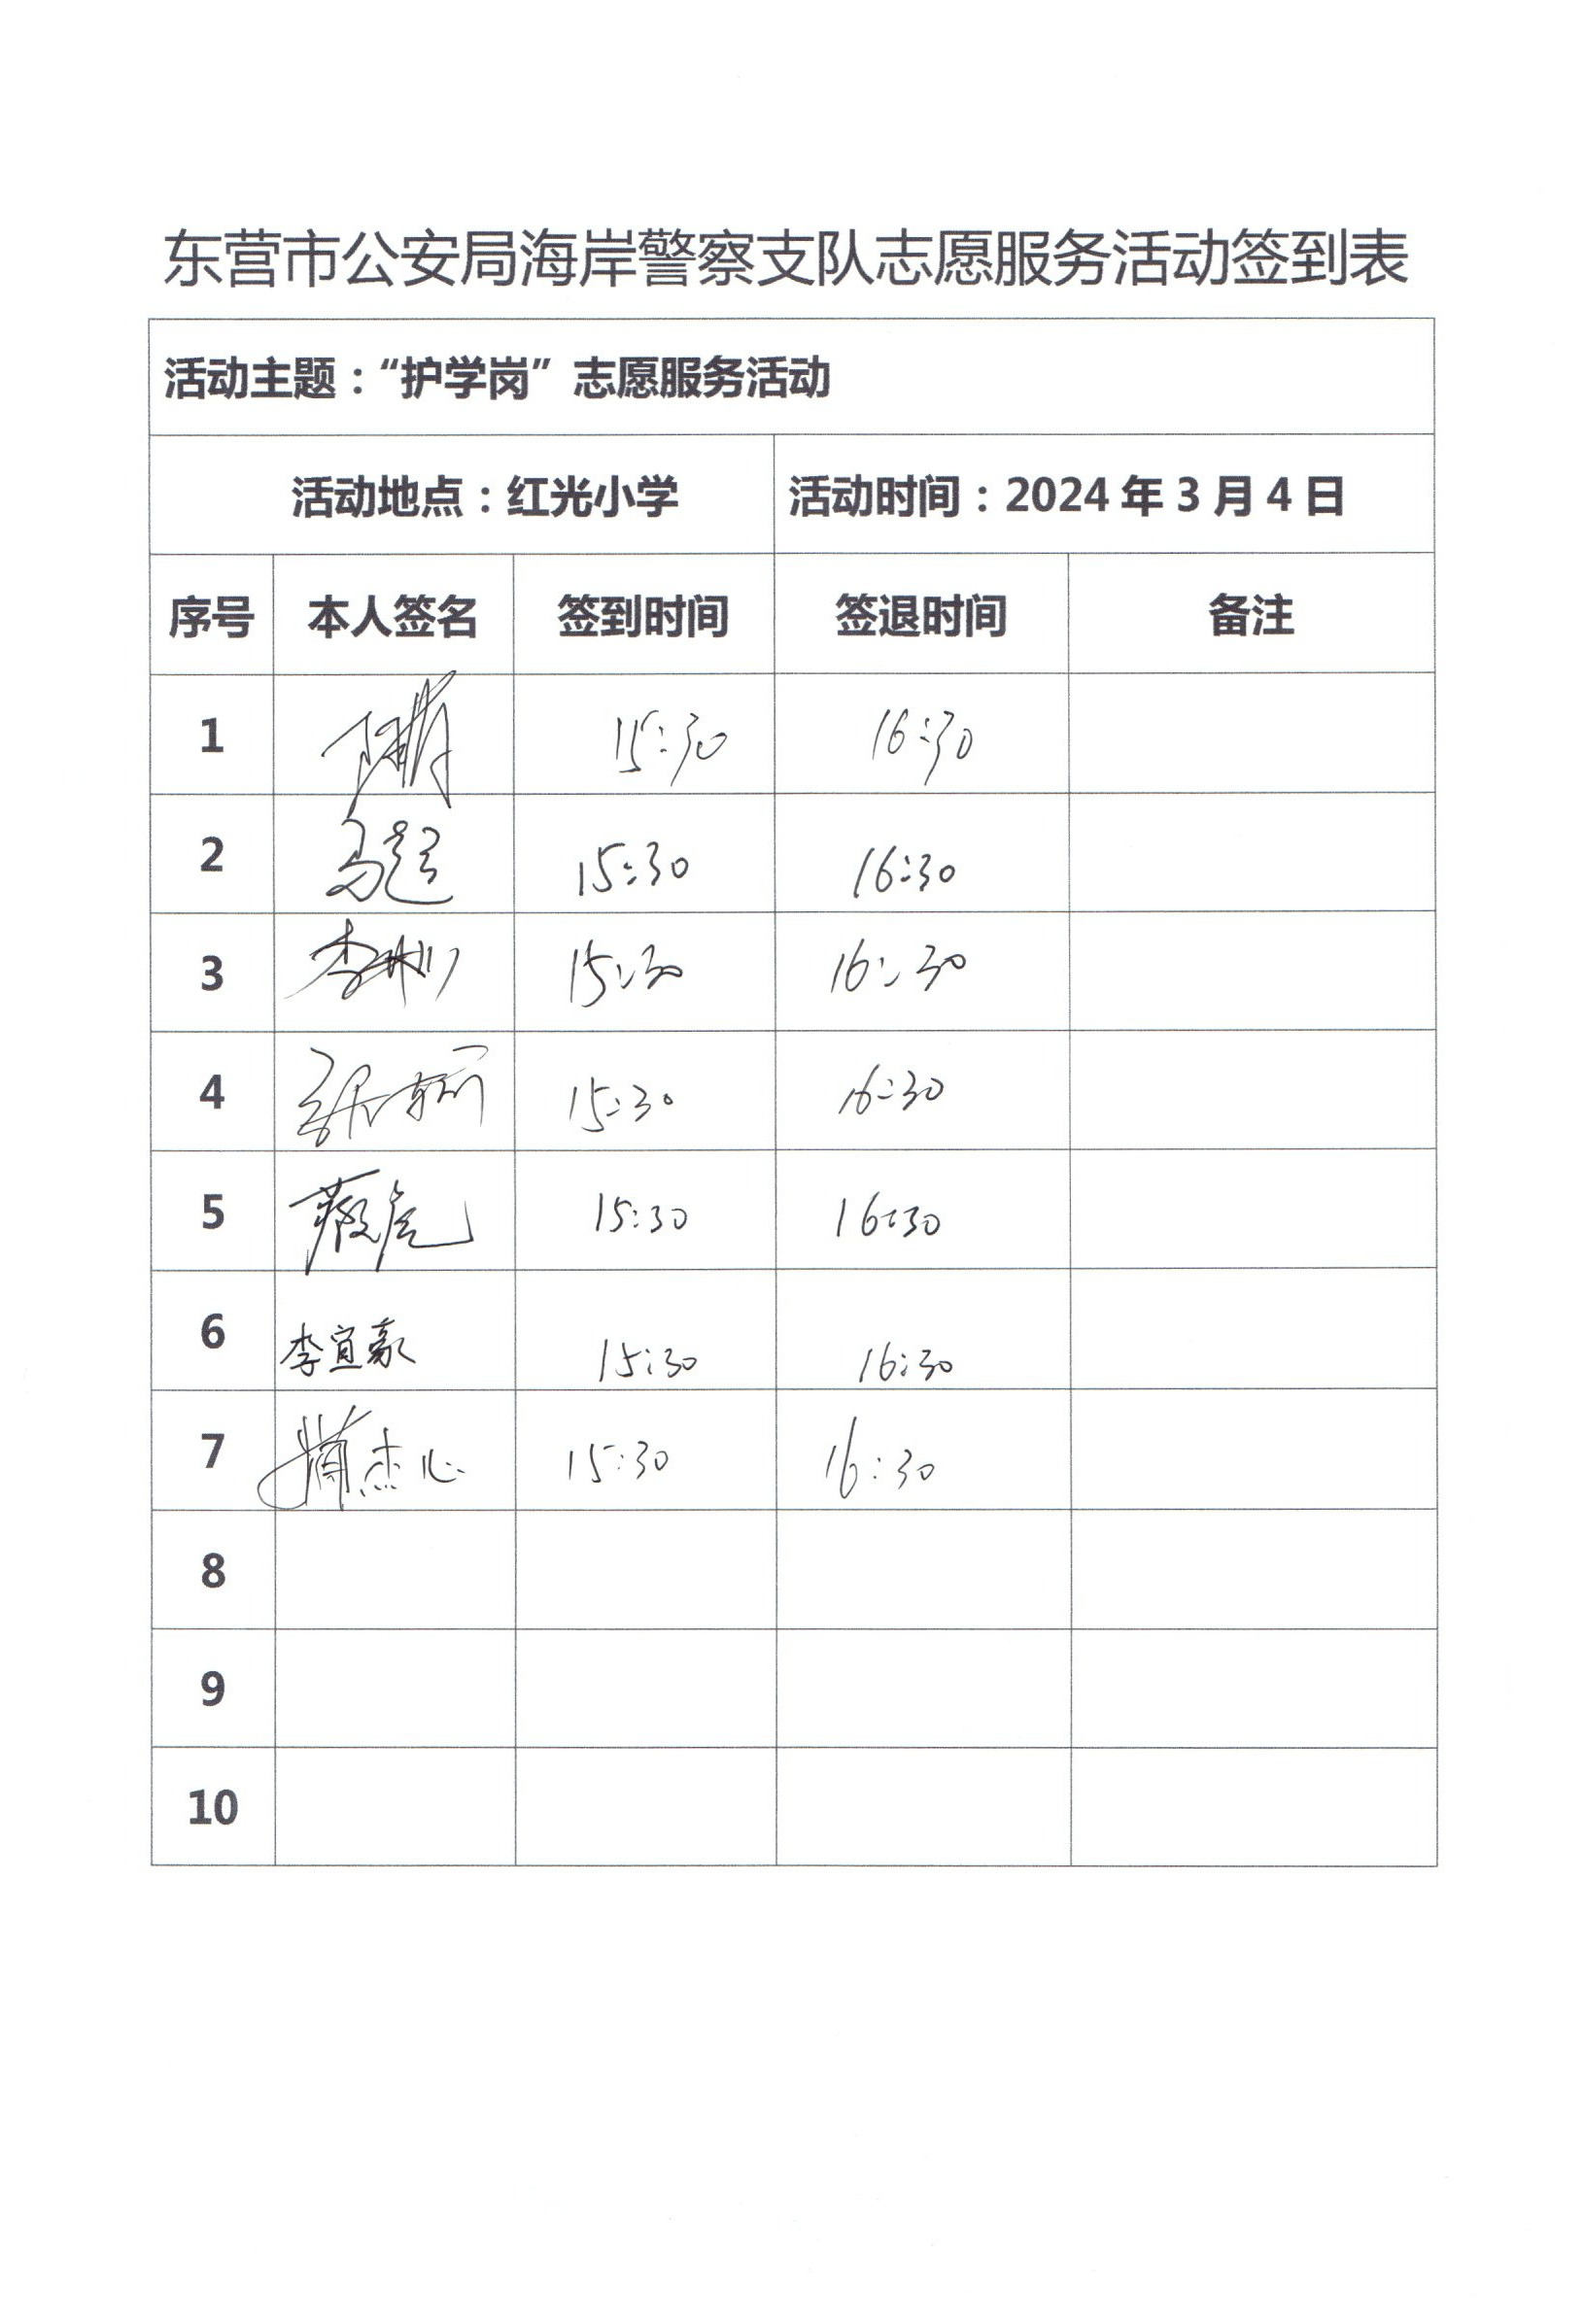 东营市公安局海岸警察支队志愿服务活动签到表
活动主题：“护学岗”志愿服务活动
活动地点：红光小学 活动时间：2024 年 3 月 4 日
序号 本人签名 签到时间 签退时间 备注
1 15:30 16:30
2 马超 15:30 16:30
3 李 15:30 16:30
4 张 15:30 16:30
5 15:30 16:30
6 李宜豪 15:30 16:30
7 杰心 15:30 16:30
8
9
10